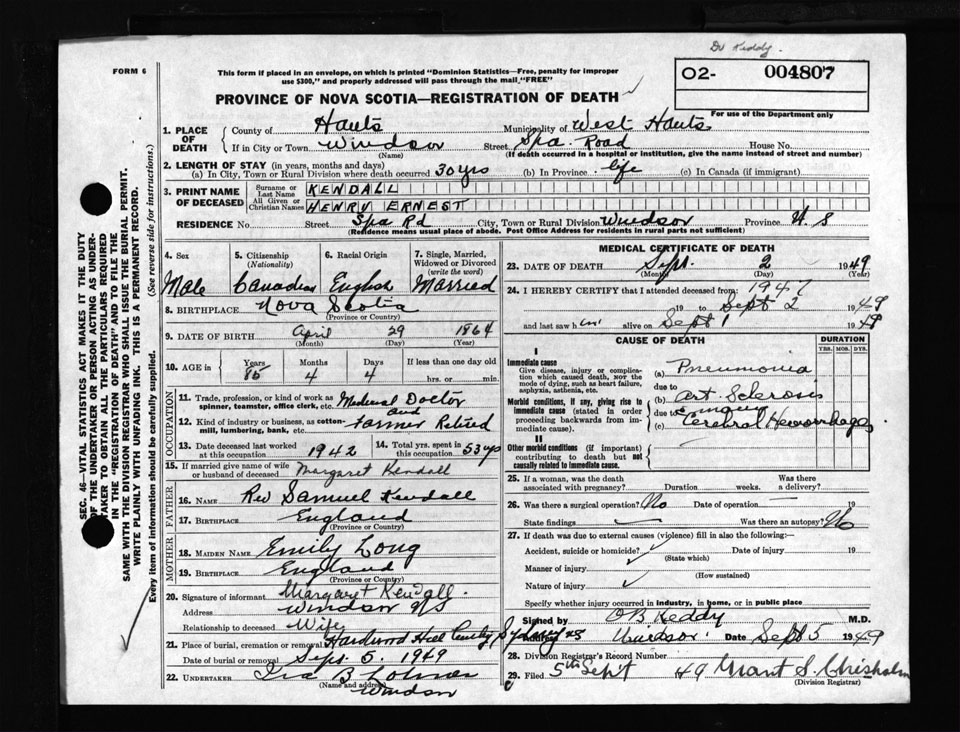 Dr Keddy.
FORM 6
This form if placed in an envelope, on which is printed "Dominion Statistics—Free, penalty for improper
use $300," and properly addressed will pass through the mail, "FREE"
O2- 004807
PROVINCE OF NOVA SCOTIA—REGISTRATION OF DEATH
For use of the Department only
1. PLACE OF DEATH
County of Hants Municipality of West Hants
If in City or Town Windsor Street Spa Road House No.
(Name) (If death occurred in a hospital or institution, give the name instead of street and number)
2. LENGTH OF STAY (in years, months and days)
(a) In City, Town or Rural Division where death occurred 30 yrs (b) In Province life (c) In Canada (if immigrant)
3. PRINT NAME OF DECEASED
Surname or Last Name KENDALL
All Given or Christian Names HENRY ERNEST
RESIDENCE No. Street Spa Rd City, Town or Rural Division Windsor Province N.S
(Residence means usual place of abode. Post Office Address for residents in rural parts not sufficient)
4. Sex Male
5. Citizenship (Nationality) Canadian
6. Racial Origin English
7. Single, Married, Widowed or Divorced (write the word) Married
8. BIRTHPLACE Nova Scotia
(Province or Country)
9. DATE OF BIRTH April 29 1864
(Month) (Day) (Year)
10. AGE in Years 85 Months 4 Days 4 If less than one day old
hrs. or min.
OCCUPATION
11. Trade, profession, or kind of work as spinner, teamster, office clerk, etc. Medical Doctor and
12. Kind of industry or business, as cotton-mill, lumbering, bank, etc. Farmer Retired
13. Date deceased last worked at this occupation 1942
14. Total yrs. spent in this occupation 53 yrs
15. If married give name of wife or husband of deceased Margaret Kendall
FATHER
16. NAME Rev Samuel Kendall
17. BIRTHPLACE England
(Province or Country)
MOTHER
18. MAIDEN NAME Emily Long
19. BIRTHPLACE England
(Province or Country)
20. Signature of informant Margaret Kendall.
Address Windsor N/S
Relationship to deceased Wife
21. Place of burial, cremation or removal Hardwood Hill Sydney NS
Date of burial or removal Sept. 5. 1949
22. UNDERTAKER Ira B
(Name and address) Windsor
MEDICAL CERTIFICATE OF DEATH
23. DATE OF DEATH Sept. 2 1949
(Month) (Day) (Year)
24. I HEREBY CERTIFY that I attended deceased from: 1947
19 to Sept 2 1949
and last saw him alive on Sept 1 1949
CAUSE OF DEATH
DURATION
YRS. MOS. DYS.
I
Immediate cause
Give disease, injury or complication which caused death, not the mode of dying, such as heart failure, asphyxia, asthenia, etc.
(a) Pneumonia
due to
Morbid conditions, if any, giving rise to immediate cause (stated in order proceeding backwards from immediate cause).
(b) Art. Sclerosis
due to
(c) Cerebral Hemorrhages
II
Other morbid conditions (if important) contributing to death but not causally related to immediate cause.
25. If a woman, was the death associated with pregnancy? Duration weeks. Was there a delivery?
26. Was there a surgical operation? No Date of operation 19
State findings Was there an autopsy? No
27. If death was due to external causes (violence) fill in also the following:—
Accident, suicide or homicide? Date of injury 19
(State which)
Manner of injury
(How sustained)
Nature of injury
Specify whether injury occurred in industry, in home, or in public place
Signed by O B Keddy M.D.
Windsor. Date Sept 5 1949
28. Division Registrar's Record Number
29. Filed 5th Sept 49 Grant S. Chisholm
(Division Registrar)
SEC. 46—VITAL STATISTICS ACT MAKES IT THE DUTY
OF THE UNDERTAKER OR PERSON ACTING AS UNDERTAKER
TO OBTAIN ALL THE PARTICULARS REQUIRED
IN THE "REGISTRATION OF DEATH" AND TO FILE THE
SAME WITH THE DIVISION REGISTRAR WHO SHALL ISSUE THE BURIAL PERMIT.
WRITE PLAINLY WITH UNFADING INK. THIS IS A PERMANENT RECORD.
Every item of information should be carefully supplied. (See reverse side for instructions.)